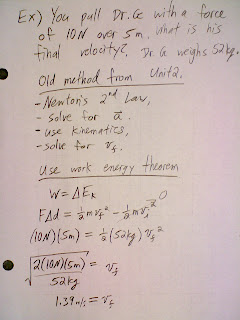 Ex) You pull Dr. G with a force
of 10N over 5m. What is his
final velocity? Dr. G weighs 52kg.
Old method from Unit 2.
- Newton's 2nd Law,
- solve for a⃗.
- use kinematics,
- solve for vf.
Use work energy theorem
W = ΔEk
FΔd = ½mvf² - ½mvi² 0
(10N)(5m) = ½(52kg)vf²
√(2(10N)(5m)/52kg) = vf
1.39m/s = vf